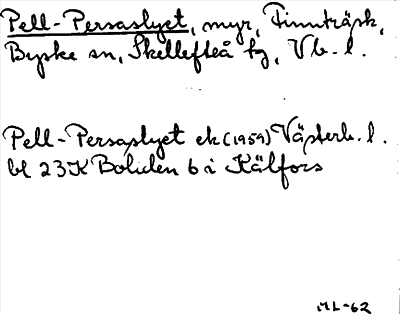 Pell-Persaslyet, myr, Finnträsk,
Byske sn, Skellefteå tg, Vb. l.
Pell-Persaslyet ek (1959) Västerb. l.
bl 23K Boliden 6 i Kälfors
ML-62